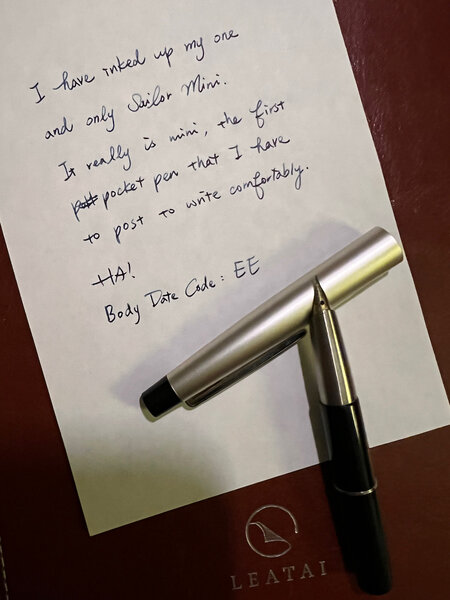 I have inked up my one
and only Sailor Mini.
It really is mini, the first
pocket pen that I have
to post to write comfortably.
HA!
Body Date Code: EE
LEATAI